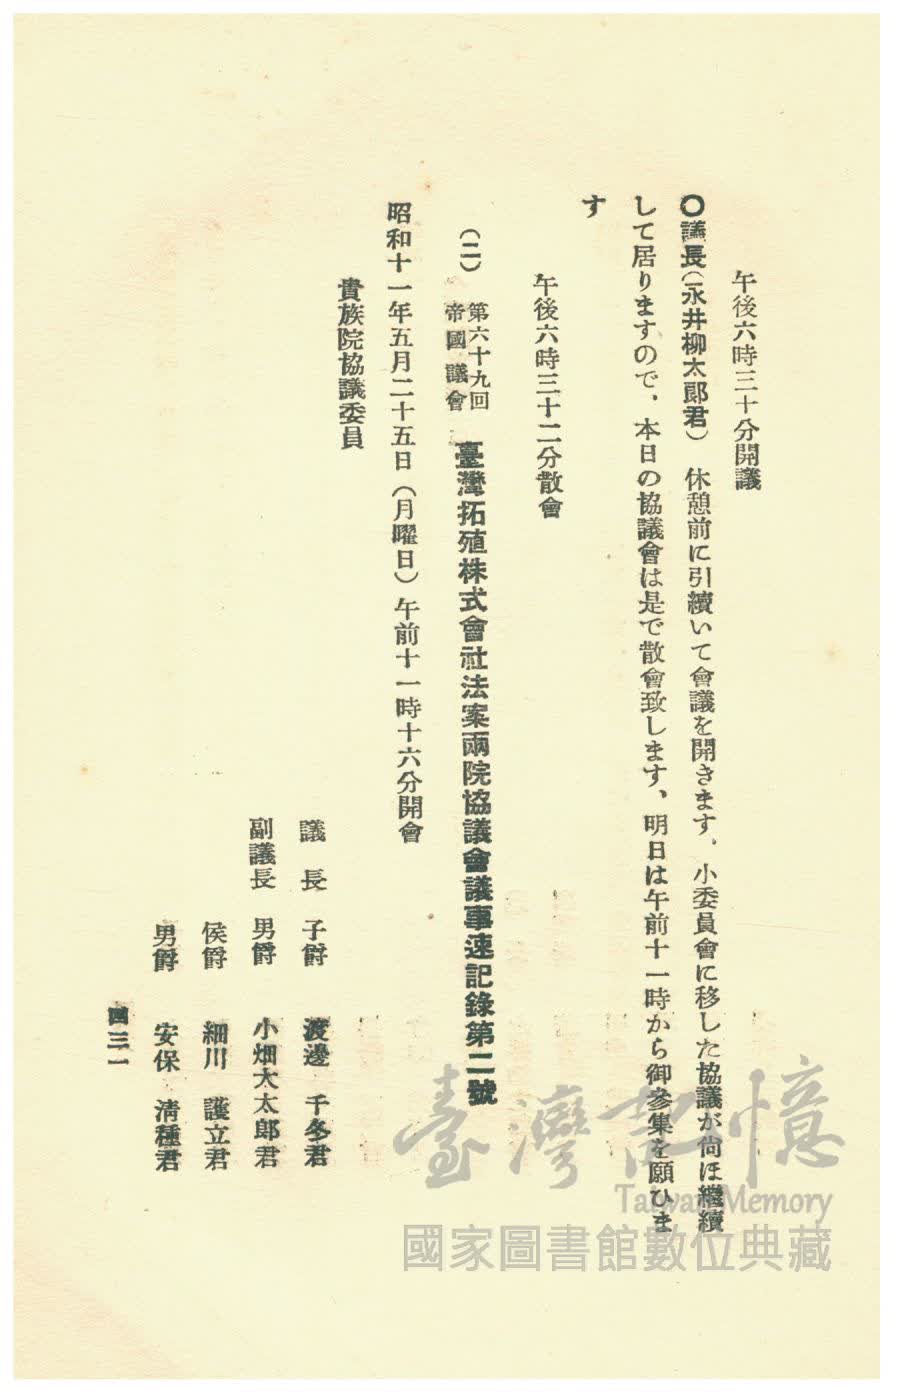 午後六時三十分開議
〇議長（永井柳太郞君）　休憩前に引續いて會議を開きます、小委員會に移した協議が尙ほ繼續
して居りますので、本日の協議會は是で散會致します、明日は午前十一時から御參集を願ひま
す
午後六時三十二分散會
（二）第六十九回帝國議會　臺灣拓殖株式會社法案兩院協議會議事速記錄第二號
昭和十一年五月二十五日（月曜日）午前十一時十六分開會
貴族院協議委員
議　長　子爵　渡邊　千冬君
副議長　男爵　小畑大太郎君
侯爵　細川　護立君
男爵　安保　淸種君
四三一
臺灣記憶
Taiwan Memory
國家圖書館數位典藏